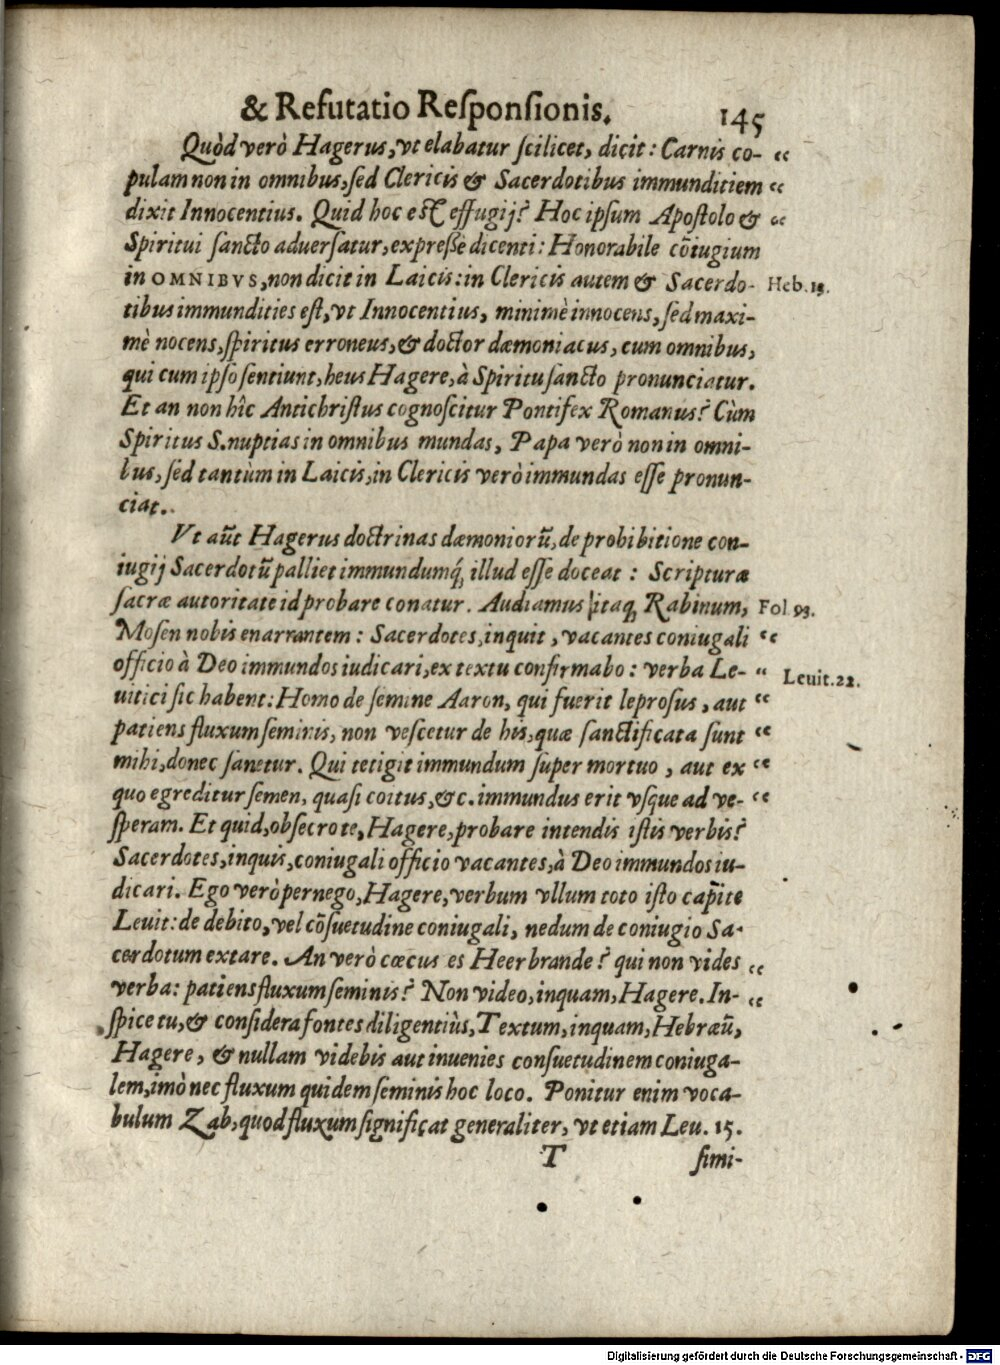 & Refutatio Reſponſionis. 145
Quòd verò Hagerus, vt elabatur ſcilicet, dicit: Carnis co- “
pulam non in omnibus, ſed Clericis & Sacerdotibus immunditiem “
dixit Innocentius. Quid hoc eſt effugij? Hoc ipſum Apoſtolo & “
Spiritui ſancto aduerſatur, expreßè dicenti: Honorabile cõiugium
in OMNIBVS, non dicit in Laicis: in Clericis autem & Sacerdo- Heb. 13.
tibus immundities eſt, vt Innocentius, minimè innocens, ſed maxi-
mè nocens, ſpiritus erroneus, & doctor dæmoniacus, cum omnibus,
qui cum ipſo ſentiunt, heus Hagere, à Spiritu ſancto pronunciatur.
Et an non hîc Antichriſtus cognoſcitur Pontifex Romanus? Cùm
Spiritus S. nuptias in omnibus mundas, Papa verò non in omni-
bus, ſed tantùm in Laicis, in Clericis verò immundas eſſe pronun-
ciat.
Vt aũt Hagerus doctrinas dæmoniorũ, de prohibitione con-
iugij Sacerdotũ palliet immundumq́; illud eſſe doceat: Scripturæ
ſacræ autoritate id probare conatur. Audiamus itaq; Rabinum, Fol. 93.
Moſen nobis enarrantem: Sacerdotes, inquit, vacantes coniugali “
officio à Deo immundos iudicari, ex textu confirmabo: verba Le- “ Leuit. 22.
uitici ſic habent: Homo de ſemine Aaron, qui fuerit leproſus, aut “
patiens fluxum ſeminis, non veſcetur de his, quæ ſanctificata ſunt “
mihi, donec ſanetur. Qui tetigit immundum ſuper mortuo, aut ex “
quo egreditur ſemen, quaſi coitus, &c. immundus erit vſque ad ve- “
ſperam. Et quid, obſecro te, Hagere, probare intendis iſtis verbis?
Sacerdotes, inquis, coniugali officio vacantes, à Deo immundos iu-
dicari. Ego verò pernego, Hagere, verbum vllum toto iſto capite
Leuit: de debito, vel cõſuetudine coniugali, nedum de coniugio Sa-
cerdotum extare. An verò cæcus es Heerbrande? qui non vides “
verba: patiens fluxum ſeminis? Non video, inquam, Hagere. In- “
ſpice tu, & conſidera fontes diligentiùs, Textum, inquam, Hebræũ,
Hagere, & nullam videbis aut inuenies conſuetudinem coniuga-
lem, imò nec fluxum quidem ſeminis hoc loco. Ponitur enim voca-
bulum Zab, quod fluxum ſignificat generaliter, vt etiam Leu. 15.
T ſimi-
Digitalisierung gefördert durch die Deutsche Forschungsgemeinschaft - DFG